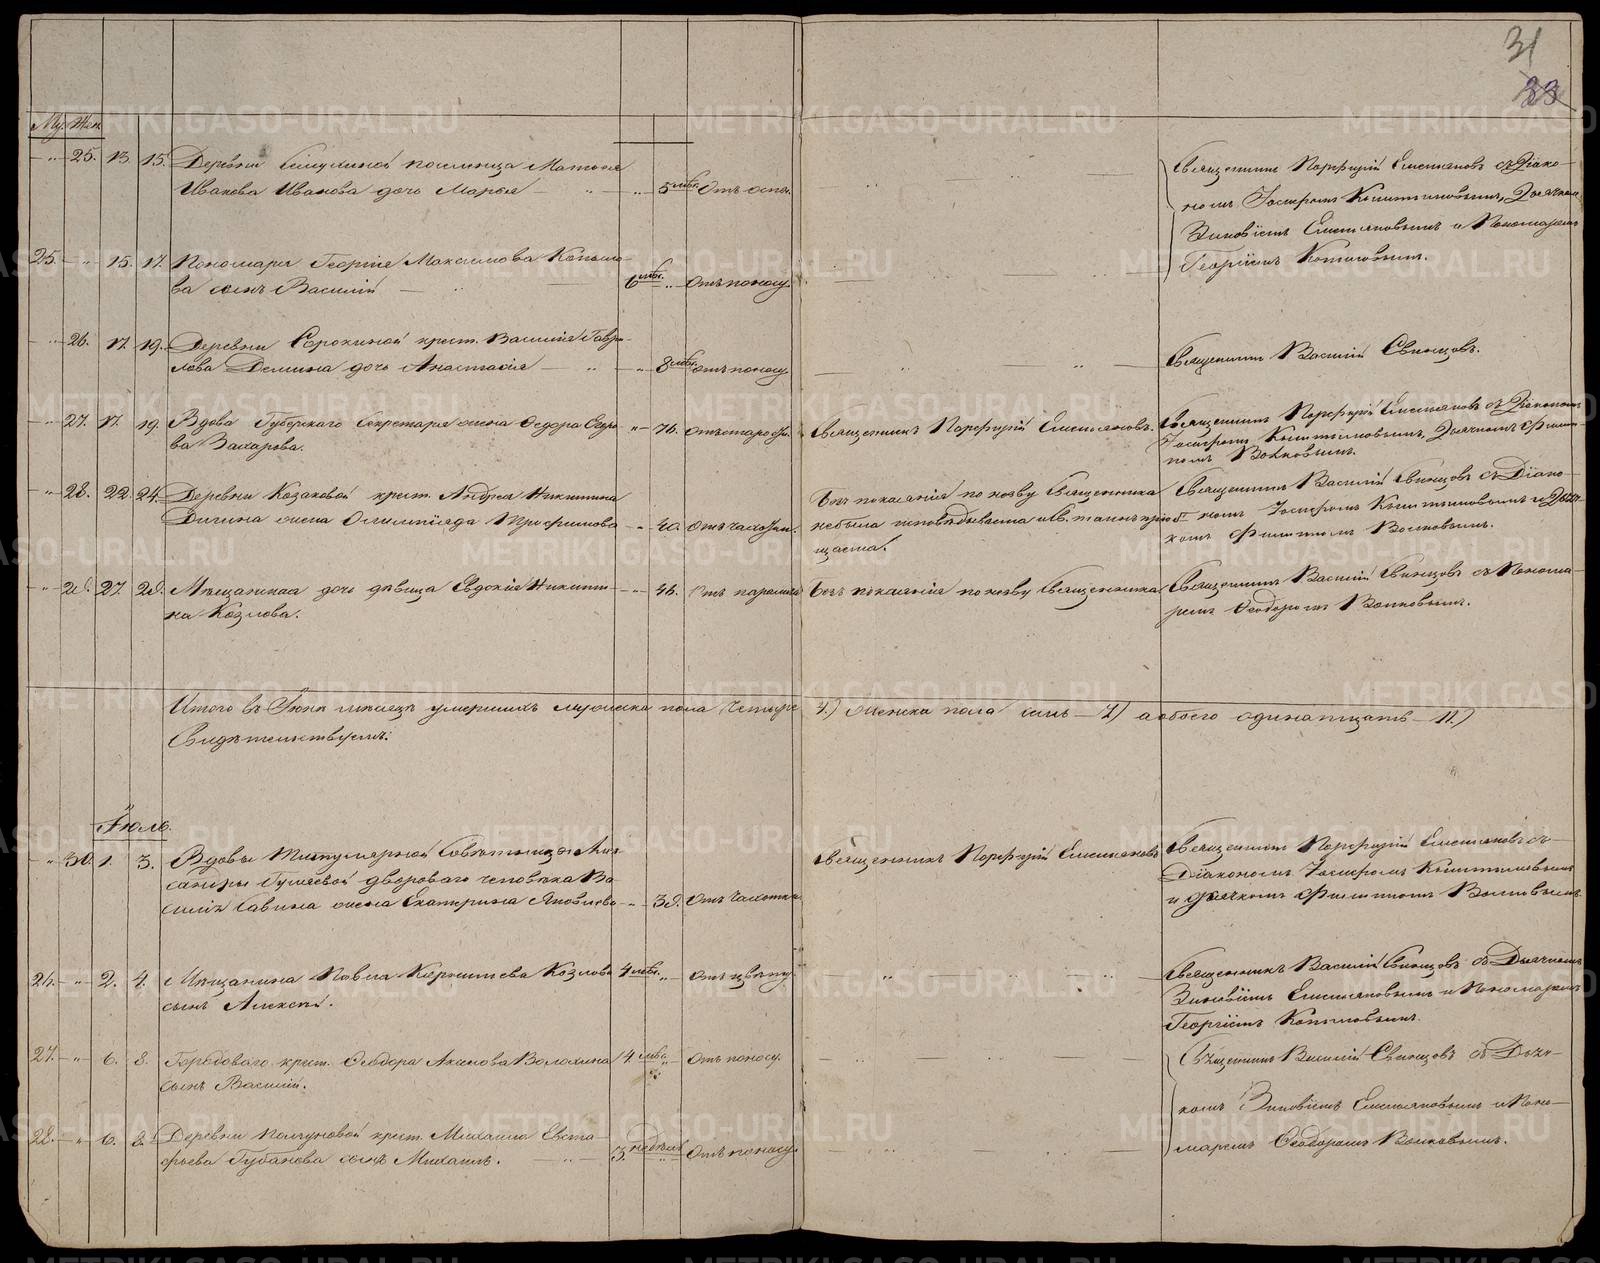 31
33
Му. Жен.
" 25. 13. 15. Деревни поселенца Матвея
Иванова Иванова дочь Марья — " — " 5 мѣс. Отъ оспы.
Священникъ Порфирій Емельяновъ съ Діако-
номъ Іосифомъ Кыштымовымъ, Дьячкомъ
Зиновіемъ Емельяновымъ и Пономаремъ
Георгіемъ Копыловымъ.
25. " 15. 17. Пономаря Георгія Максимова Копыло-
ва сынъ Василій — " — 6 мѣс. " Отъ поносу.
" 26. 17. 19. Деревни Сорокиной крест. Василія Гаври-
лова Демина дочь Анастасія — " — " 8 мѣс. отъ поносу.
Священникъ Василій Свинцовъ.
" 27. 17. 19. Вдова Губерскаго Секретаря жена Ѳедора
ва Захарова. " 76. отъ старости.
Священникъ Порфирій Емельяновъ.
Священникъ Порфирій Емельяновъ съ Діакономъ
Іосифомъ Кыштымовымъ, Дьячкомъ Филип-
помъ Волковымъ.
" 28. 22. 24. Деревни Козаковой крест. Андрея Никитина
Дигина жена Олимпіяда Трофимова — " — 40. Отъ чахотки.
безъ покаянія по незву Священника
небыла исповѣдывана и Св. таинъ пріоб-
щаема.
Священникъ Василій Свинцовъ съ Діако-
номъ Іосифомъ Кыштымовымъ и Дьяч-
комъ Филиппомъ Волковымъ.
" 29. 27. 29. Мѣщанина дочь дѣвица Евдокія Никити-
на Козлова. " 46. Отъ паралича
безъ покаянія по незву Священника
Священникъ Василій Свинцовъ съ Понома-
ремъ Ѳеодоромъ Волковымъ.
Итого въ Іюнѣ мѣсяцѣ умершихъ мужеска пола четыре 4.) Женска пола семь — 7) а обоего одинатцать — 11.)
Свидѣтельствуемъ:
Іюль.
" 30. 1. 3. Вдовы Титулярной Совѣтницы Алек-
сандры Гуляевой двороваго человѣка Ва-
силія Савина жена Екатерина Яковлева — " — 39. Отъ Чахотки
Священникъ Порфирій Емельяновъ
Священникъ Порфирій Емельяновъ съ
Діакономъ Іосифомъ Кыштымовымъ
и дьячкомъ Филиппомъ Волковымъ.
26. " 2. 4. Мѣщанина Павла Козлова 4 мѣс. " Отъ цвѣту.
сынъ Алексѣй.
Священникъ Василій Свинцовъ съ Дьячкомъ
Зиновіемъ Емельяновымъ и Пономаремъ
Георгіемъ Копыловымъ.
27. " 6. 8. Городоваго крест. Ѳеодора Волохина 4 мѣс. " Отъ поносу.
сынъ Василій.
Священникъ Василій Свинцовъ съ Дьяч-
комъ Зиновіемъ Емельяновымъ и Поно-
маремъ Ѳеодоромъ Волковымъ.
28. " 6. 8. Деревни крест. Михаила Евста-
фьева Губанова сынъ Михаилъ. — " — 3 недѣли " Отъ поносу.
METRIKI.GASO-URAL.RU